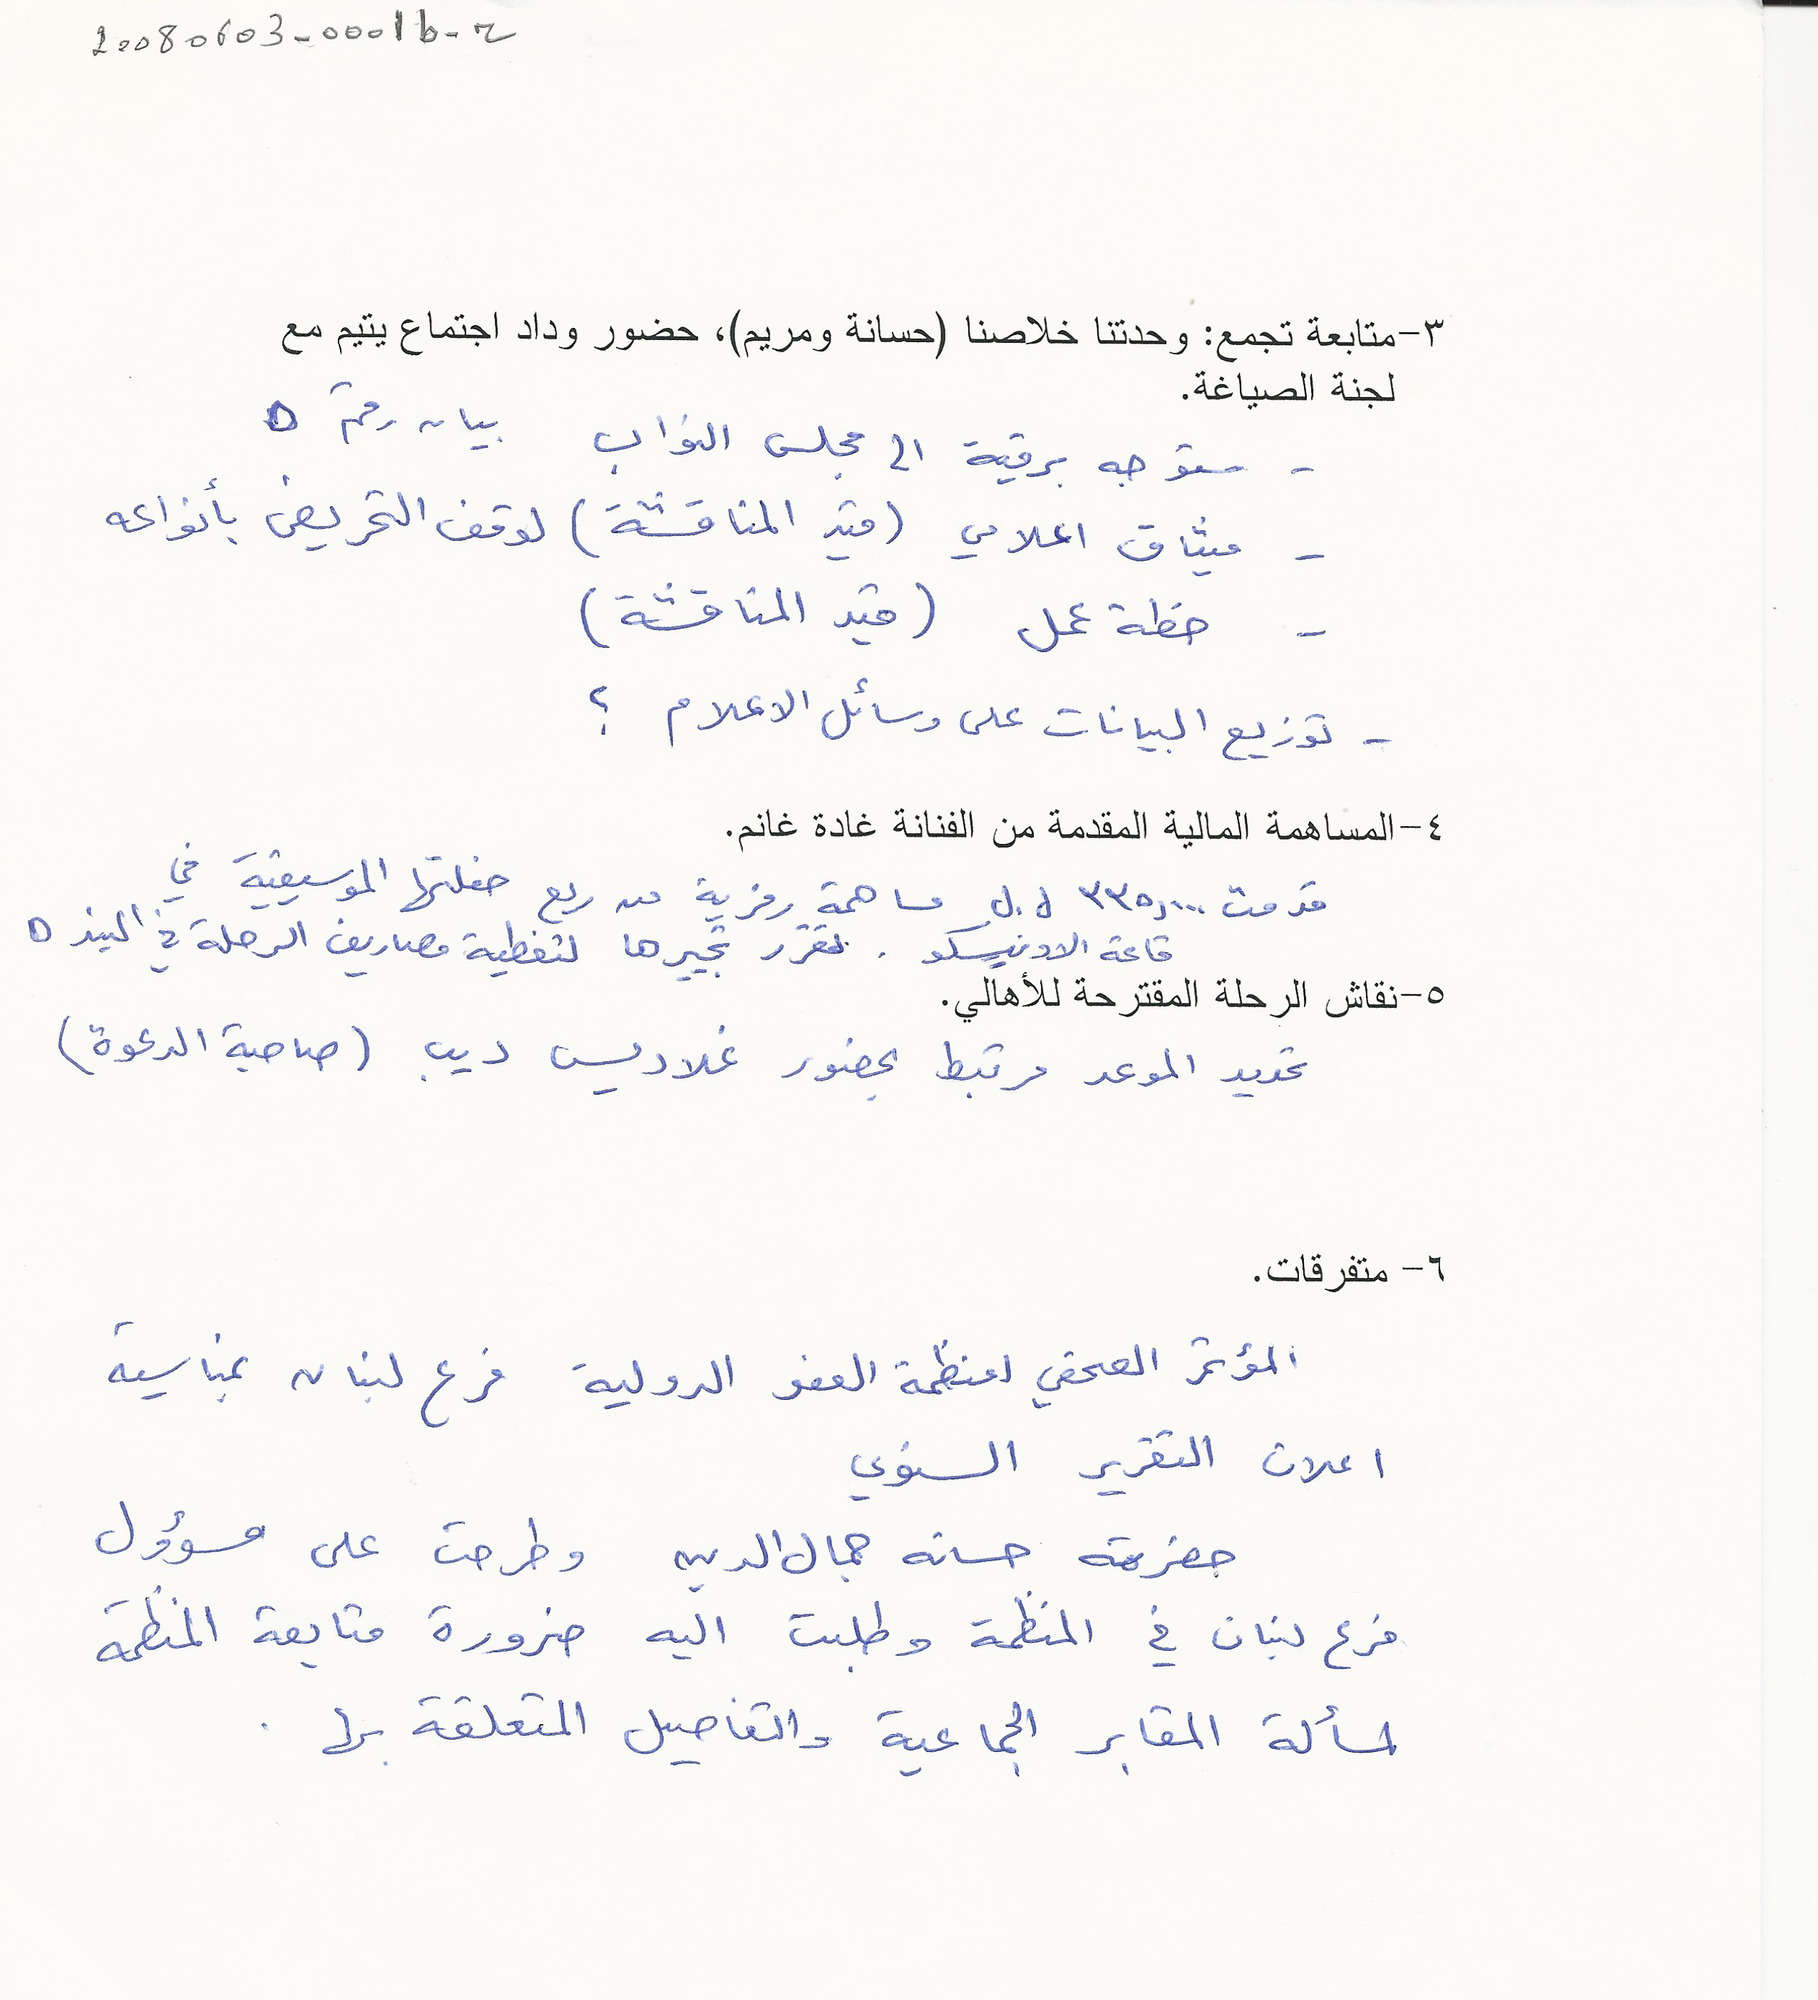 20080603-0001b-r
٣-متابعة تجمع: وحدتنا خلاصنا (حسانة ومريم)، حضور وداد اجتماع يتيم مع
لجنة الصياغة.
- ستوجه برقية الى مجلس النواب بيان رقم ٥
- ميثاق اعلامي (قيد المناقشة) لوقف التحريض بأنواعه
- خطة عمل (قيد المناقشة)
- توزيع البيانات على وسائل الاعلام ؟
٤-المساهمة المالية المقدمة من الفنانة غادة غانم.
قدمت ٣٣٥,٠٠٠ ل.ل مساهمة رمزية من ريع حفلتها الموسيقية في
قاعة الاونيسكو. تقرر تجييرها لتغطية مصاريف الرحلة في البند ٥
٥-نقاش الرحلة المقترحة للأهالي.
تحديد الموعد مرتبط بحضور غلاديس ديب (صاحبة الدعوة)
٦- متفرقات.
المؤتمر الصحفي لمنظمة العفو الدولية فرع لبنان بمناسبة
اعلان التقرير السنوي
حضرته حسانه جمال الدين وطرحت على مسؤول
فرع لبنان في المنظمة وطلبت اليه ضرورة متابعة المنظمة
لمسألة المقابر الجماعية والتفاصيل المتعلقة بها .